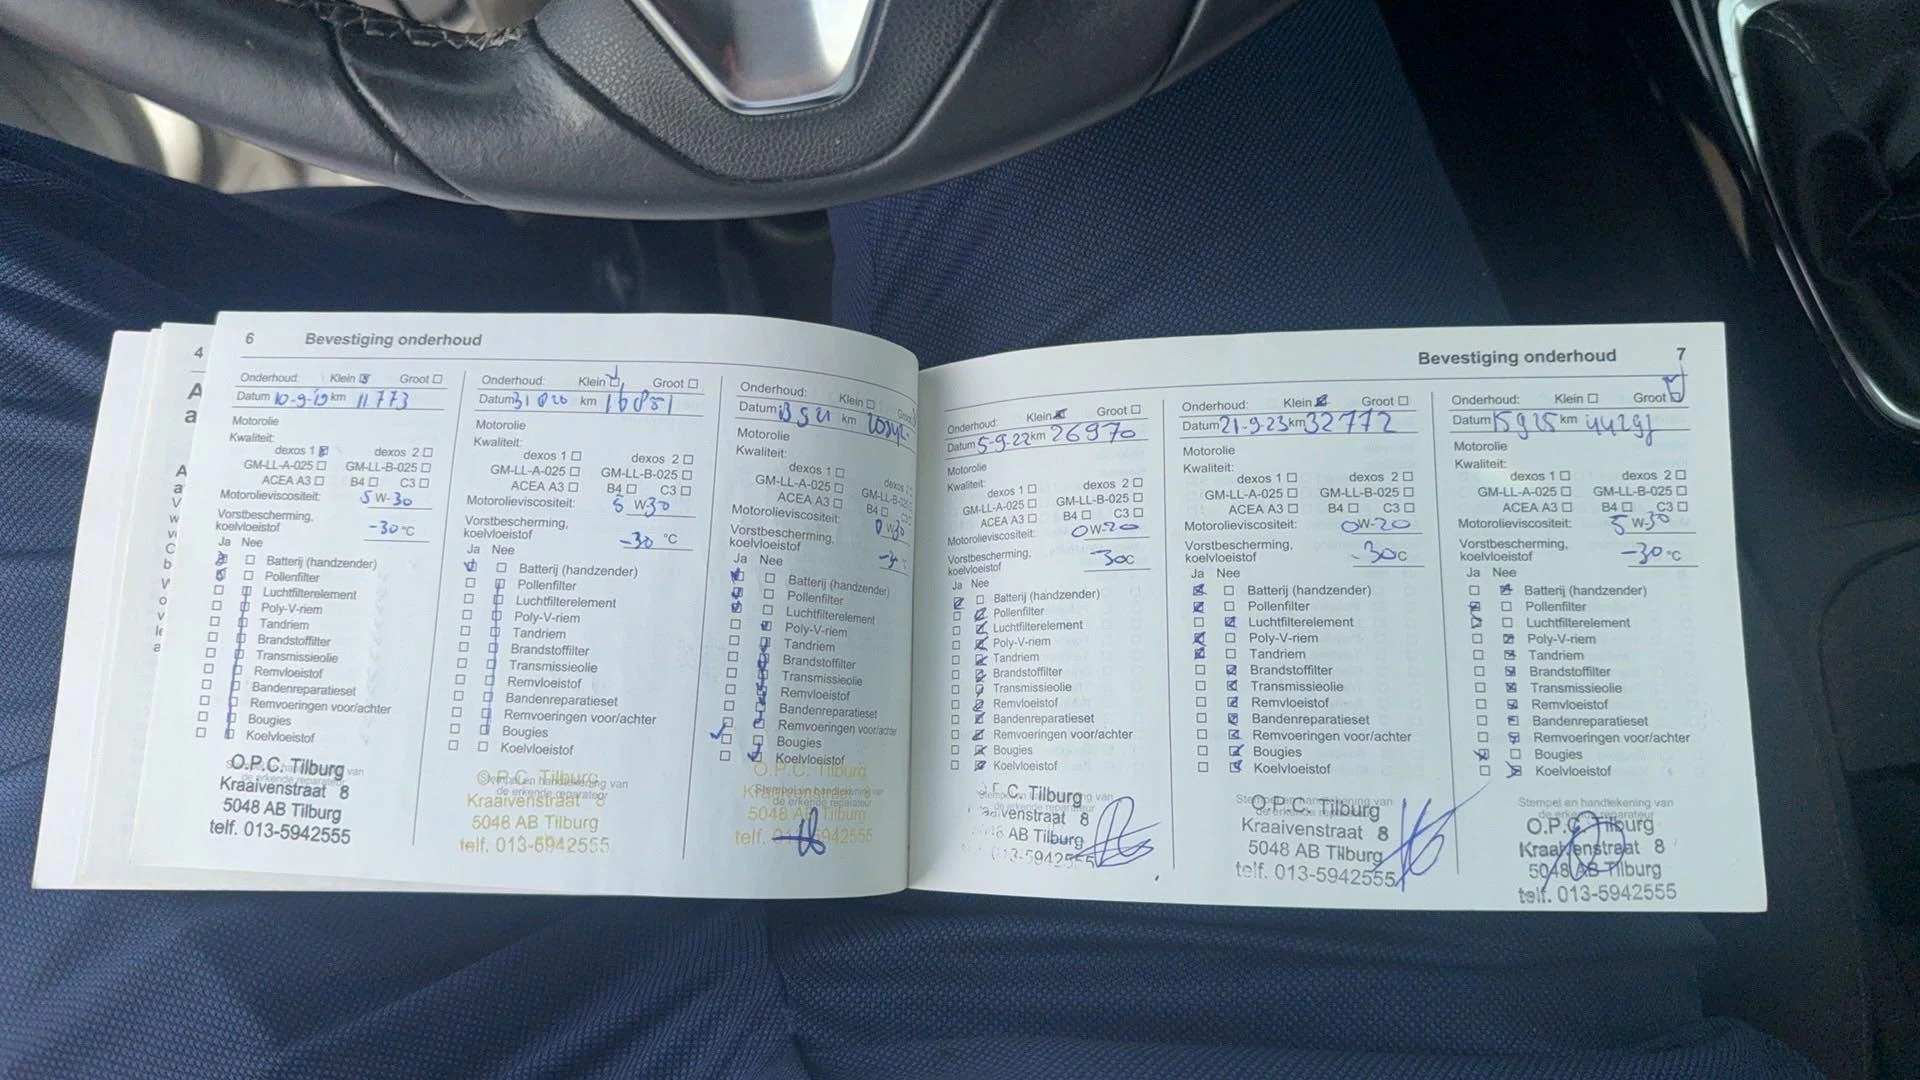 6 Bevestiging onderhoud
Onderhoud: Klein Groot
Datum 10-9-19 km 11773
Motorolie
Kwaliteit:
dexos 1 dexos 2
GM-LL-A-025 GM-LL-B-025
ACEA A3 B4 C3
Motorolieviscositeit: 5W-30
Vorstbescherming,
koelvloeistof -30 °C
Ja Nee
Batterij (handzender)
Pollenfilter
Luchtfilterelement
Poly-V-riem
Tandriem
Brandstoffilter
Transmissieolie
Remvloeistof
Bandenreparatieset
Remvoeringen voor/achter
Bougies
Koelvloeistof
O.P.C. Tilburg
Kraaivenstraat 8
5048 AB Tilburg
telf. 013-5942555
Onderhoud: Klein Groot
Datum km
Motorolie
Kwaliteit:
dexos 1 dexos 2
GM-LL-A-025 GM-LL-B-025
ACEA A3 B4 C3
Motorolieviscositeit: 5 W-30
Vorstbescherming,
koelvloeistof -30 °C
Ja Nee
Batterij (handzender)
Pollenfilter
Luchtfilterelement
Poly-V-riem
Tandriem
Brandstoffilter
Transmissieolie
Remvloeistof
Bandenreparatieset
Remvoeringen voor/achter
Bougies
Koelvloeistof
O.P.C. Tilburg
Kraaivenstraat 8
5048 AB Tilburg
telf. 013-5942555
Onderhoud: Klein
Datum km
Motorolie
Kwaliteit:
dexos 1 dexos
GM-LL-A-025 GM-LL-B-025
ACEA A3 B4
Motorolieviscositeit: 0 W-30
Vorstbescherming,
koelvloeistof
Ja Nee
Batterij (handzender)
Pollenfilter
Luchtfilterelement
Poly-V-riem
Tandriem
Brandstoffilter
Transmissieolie
Remvloeistof
Bandenreparatieset
Remvoeringen voor/achter
Bougies
Koelvloeistof
O.P.C. Tilburg
Kraaivenstraat 8
5048 AB Tilburg
telf. 013-5942555
Bevestiging onderhoud 7
Onderhoud: Klein Groot
Datum 5-9-22 km 26970
Motorolie
Kwaliteit:
dexos 1 dexos 2
GM-LL-A-025 GM-LL-B-025
ACEA A3 B4 C3
Motorolieviscositeit: 0W-20
Vorstbescherming,
koelvloeistof -30C
Ja Nee
Batterij (handzender)
Pollenfilter
Luchtfilterelement
Poly-V-riem
Tandriem
Brandstoffilter
Transmissieolie
Remvloeistof
Bandenreparatieset
Remvoeringen voor/achter
Bougies
Koelvloeistof
Tilburg
8
AB Tilburg
Onderhoud: Klein Groot
Datum 21-9-23 km 32772
Motorolie
Kwaliteit:
dexos 1 dexos 2
GM-LL-A-025 GM-LL-B-025
ACEA A3 B4 C3
Motorolieviscositeit: 0W-20
Vorstbescherming,
koelvloeistof -30C
Ja Nee
Batterij (handzender)
Pollenfilter
Luchtfilterelement
Poly-V-riem
Tandriem
Brandstoffilter
Transmissieolie
Remvloeistof
Bandenreparatieset
Remvoeringen voor/achter
Bougies
Koelvloeistof
O.P.C. Tilburg
Kraaivenstraat 8
5048 AB Tilburg
telf. 013-5942555
Onderhoud: Klein Groot
Datum 15 9 25 km
Motorolie
Kwaliteit:
dexos 1 dexos 2
GM-LL-A-025 GM-LL-B-025
ACEA A3 B4 C3
Motorolieviscositeit: 5 W-30
Vorstbescherming,
koelvloeistof -30 °C
Ja Nee
Batterij (handzender)
Pollenfilter
Luchtfilterelement
Poly-V-riem
Tandriem
Brandstoffilter
Transmissieolie
Remvloeistof
Bandenreparatieset
Remvoeringen voor/achter
Bougies
Koelvloeistof
Stempel en handtekening van
de erkende reparateur
O.P.C. Tilburg
Kraaivenstraat 8
5048 AB Tilburg
telf. 013-5942555